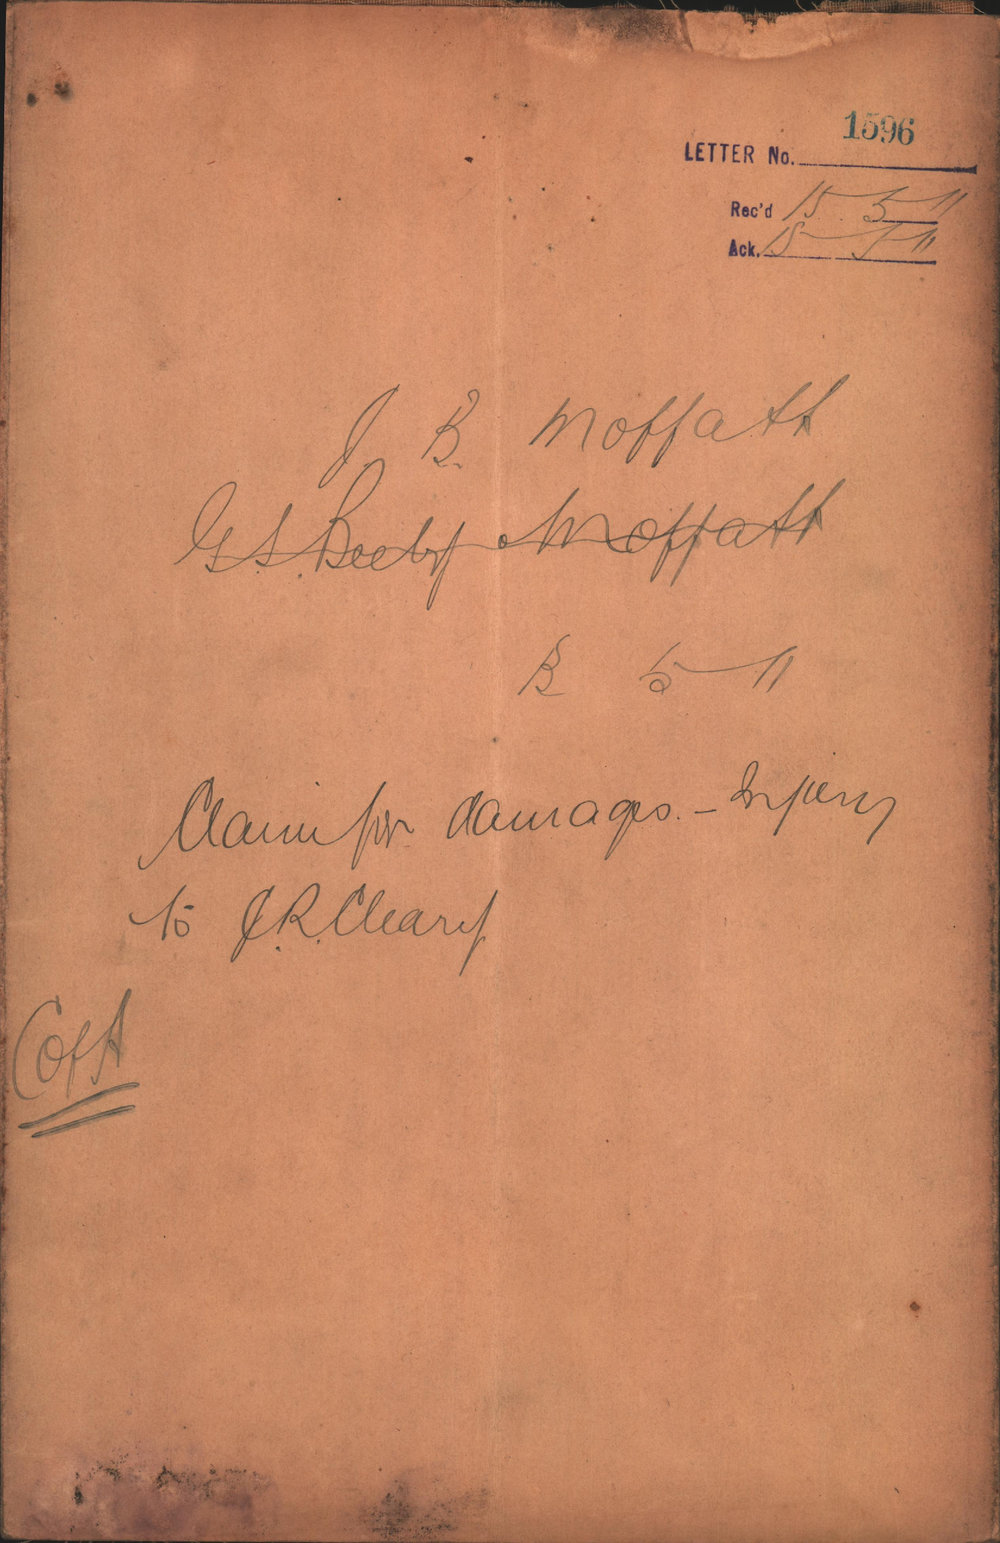 1596
LETTER No.
Rec'd 15 5 11
Ack. 15 5 11
J. B. Moffatt
G.S. Beeby & Moffatt
13 5 11
Claim for damages. - Injury
to J.R. Cleary
C of A